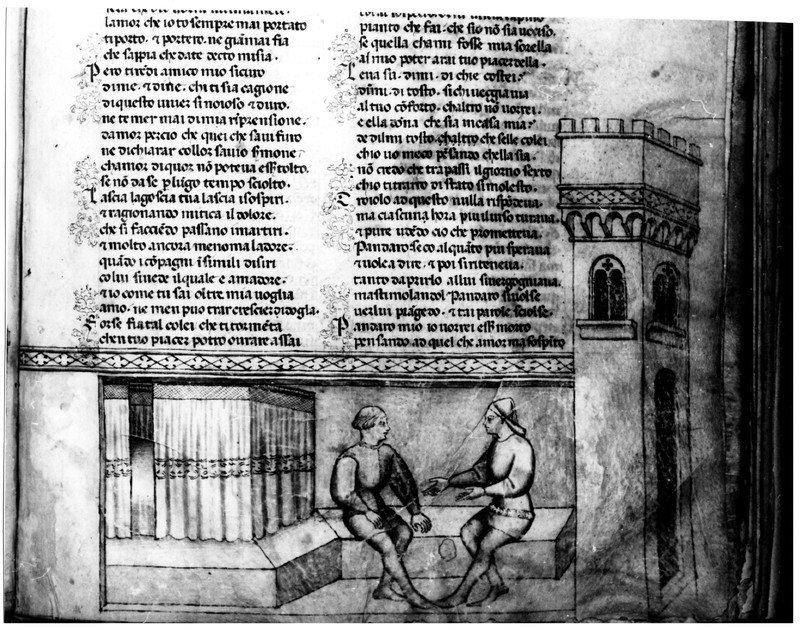 lamor che io to sempre mai portato
ti porto. & portero. ne giamai fia
che sappia che date decto misia.
Pero tiredi amico mio sicuro
dime. & dime. chi ti sia cagione
di questo viuer si noioso & duro.
ne temer mai dimia riprensione.
damor percio che quei che sauí furo
ne dichiarar collor sauio smone
chamor di quor. nō poteua ess tolto.
se nō da se p lūgo tempo sciolto.
Lascia lagoscia tua lascia isospiri.
& ragionando mitica il dolore.
che si faccēdo passano imartiri.
& molto ancora menoma lardore.
quādo i cōpagni i simili disiri
colui siuede il quale e amadore.
& io come tu sai oltre mia voglia
amo. ne men puo trar crescier di doglia.
Forse fia tal colei che ti tormēta
chen tuo piacer potro ourare assai
pianto che fai. che sio nō sia ucciso.
se quella chami fosse mia sorella
al mio poter arai tuo piacer della.
Lena su. dimi. di chie costei.
dimi. di tosto. sichi ueggia uia
al tuo cōforto. chaltro nō uorrei.
e ella dōna che sia i casa mia.
de dilmi tosto. chaltro che selle colei
chio uo meco pēsando chella sia.
nō credo che trapassi il giorno sexto
chio ti trarro di stato si molesto.
Troiolo ad questo nulla rispōdeua.
ma ciascuna hora piu il uiso turaua.
& pure udēdo cio che prometteua.
Pandaro. seco alquāto piu speraua
& uolea dire. & poi si riteneua.
tanto daprirlo allui si uergognaua.
ma stimolandol Pandaro si uolse
uer lui piāgēdo. & tai parole sciolse.
Pandaro mio io uorrei ess morto
pensando. ad quel che amor ma sospīto